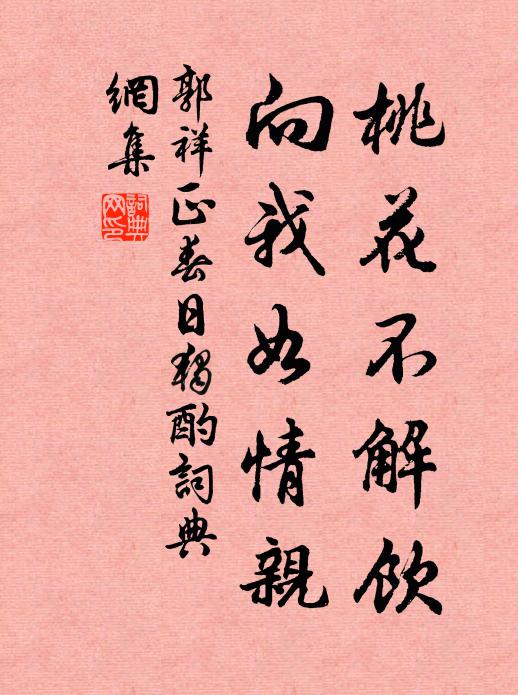 桃花不解飲
向我如情親
郭祥正春日獨酌詞典
網集
詞典
网印